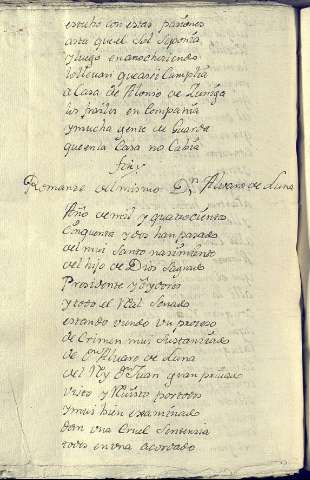 estubo con estas pasiones
asta que el Sol se ponia
y luego en anocheciendo
lo lleuan que assi cumplia
a Casa de Alonso de Zuñiga
los frailes en compañia
y mucha gente de Guarda
que en la Casa no Cabia
fin
Romanze del mismo Dn Aluaro de Luna
Año de mil y quatrocientos
Cinquenta y dos han pasado
del mui Santo nazimiento
del hijo de Dios Sagrado
Presidente y Oydores
y todo el Real Senado
estando viendo un prozeso
de Crimen mui sustanziado
de Dn Aluaro de Luna
del Rey Dn Juan gran priuado
visto y por todos
y mui bien examinado
dan una Cruel Sentenzia
todos en una acordado